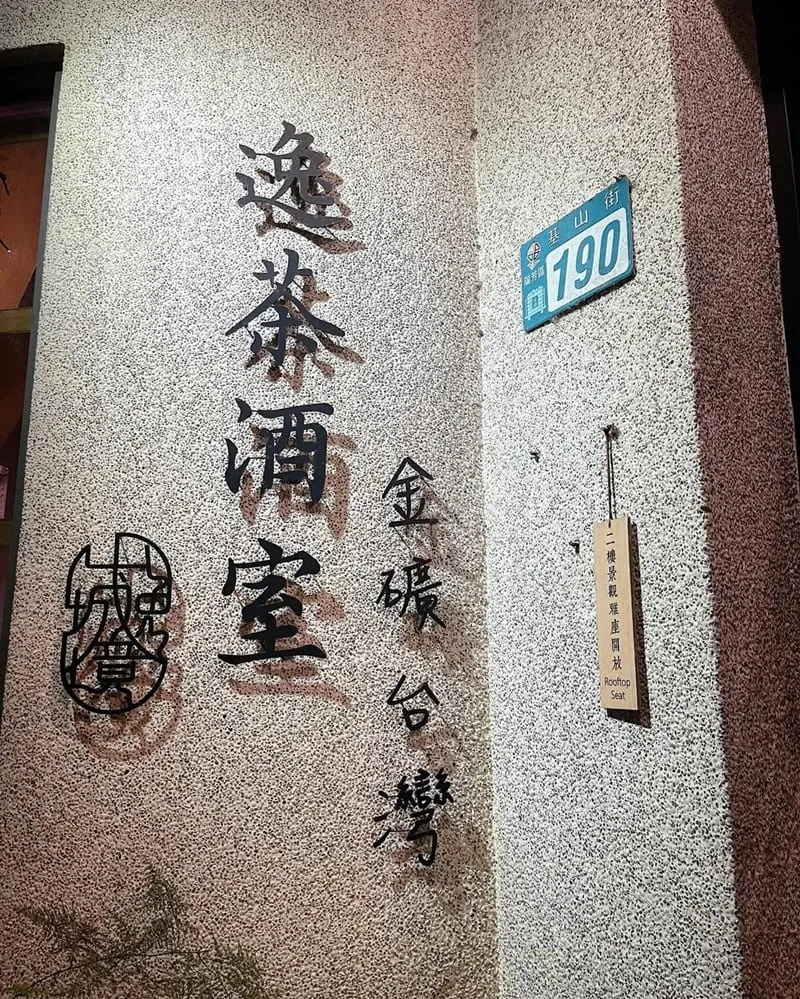 逸茶酒室
金礦台灣
基山街
190
二樓景觀雅座開放
Rooftop
Seat